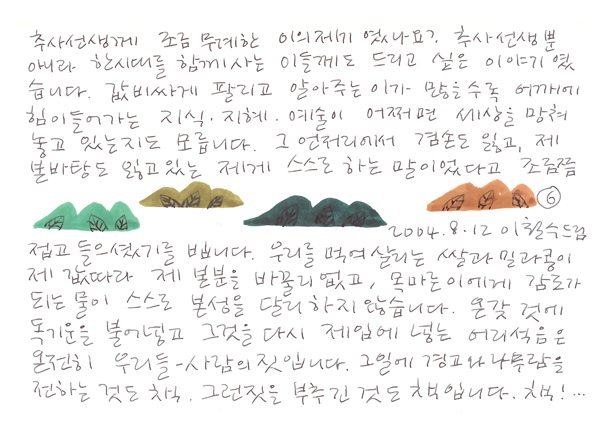 추사선생께 조금 무례한 이의제기였나요? 추사선생뿐
아니라 한시대를 함께 사는 이들께도 드리고 싶은 이야기였
습니다. 값비싸게 팔리고 알아주는 이가 많을수록 어깨에
힘이 들어가는 지식·지혜·예술이 어쩌면 세상을 망쳐
놓고 있는지도 모릅니다. 그 언저리에서 겸손도 잃고, 제
본바탕도 잃고 있는 제게 스스로 하는 말이었다고 조금쯤
⑥
2004.8.12 이철수드림
접고 들으셨기를 빕니다. 우리를 먹여 살리는 쌀과 밀과 콩이
제 값따라 제 본분을 바꿀리 없고, 목마른 이에게 감로가
되는 물이 스스로 본성을 달리하지 않습니다. 온갖 것에
독기운을 불어넣고 그것을 다시 제입에 넣는 어리석음은
온전히 우리들-사람의 짓입니다. 그일에 경고와 나무람을
전하는 것도 책. 그런짓을 부추긴 것도 책입니다. 책!…